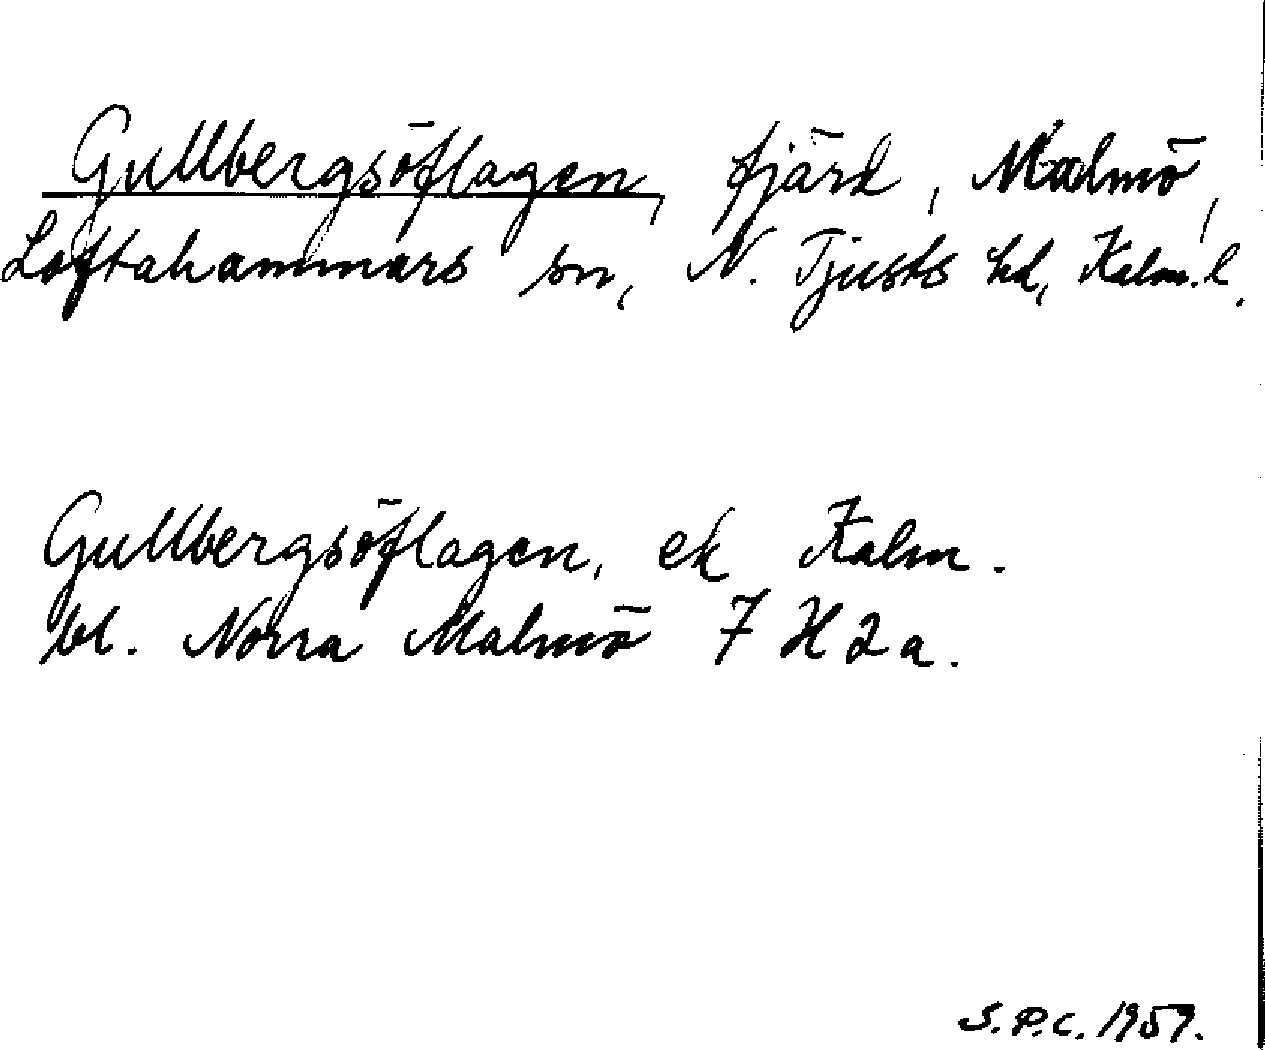 Gullbergsöflagen, fjärd, Malmö,
Loftahammars sn, N. Tjusts hd, Kalm. l.
Gullbergsöflagen, ek Kalm.
bl. Norra Malmö 7 H 2 a.
S.P.C. 1959.